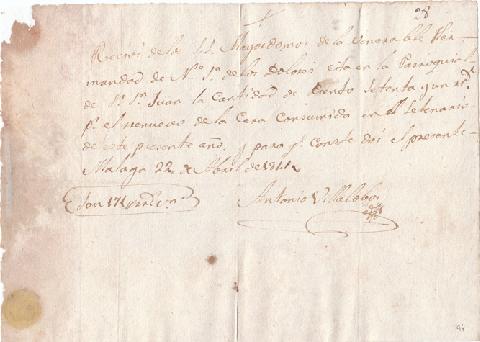 28
Recevi de los SS. Mayordomos de la Venerable Her-
mandad de Nª Sª de los Dolores sita en la Parroquial
de Sr. Sn. Juan la Cantidad de ciento setenta y un rs.
pr. el renuevo de la Cera Consumida en el Setenario
de este presente año, y para qe. conste doi el presente
Malaga 22 de Abril de 1811
Son 171 rs. von.
Antonio Villalobos